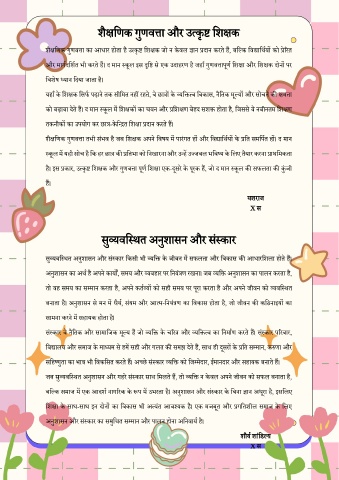 शैक्षणिक गुणवत्ता और उत्कृष्ट शिक्षक
शैक्षणिक गुणवत्ता का आधार होता है उत्कृष्ट शिक्षक जो न केवल ज्ञान प्रदान करते हैं, बल्कि विद्यार्थियों को प्रेरित
और मार्गदर्शित भी करते हैं। द मान स्कूल इस दृष्टि से एक उदाहरण है जहाँ गुणवत्तापूर्ण शिक्षा और शिक्षक दोनों पर
विशेष ध्यान दिया जाता है।
यहाँ के शिक्षक सिर्फ पढ़ाने तक सीमित नहीं रहते, वे छात्रों के व्यक्तित्व विकास, नैतिक मूल्यों और सोचने की क्षमता
को बढ़ावा देते हैं। द मान स्कूल में शिक्षकों का चयन और प्रशिक्षण बेहद सशक्त होता है, जिससे वे नवीनतम शिक्षण
तकनीकों का उपयोग कर छात्र-केन्द्रित शिक्षा प्रदान करते हैं।
शैक्षणिक गुणवत्ता तभी संभव है जब शिक्षक अपने विषय में पारंगत हों और विद्यार्थियों के प्रति समर्पित हों। द मान
स्कूल में यही सोच है कि हर छात्र की प्रतिभा को निखारना और उन्हें उज्ज्वल भविष्य के लिए तैयार करना प्राथमिकता
है। इस प्रकार, उत्कृष्ट शिक्षक और गुणवत्ता पूर्ण शिक्षा एक-दूसरे के पूरक हैं, जो द मान स्कूल की सफलता की कुंजी
हैं।
यशराज
X स
सुव्यवस्थित अनुशासन और संस्कार
सुव्यवस्थित अनुशासन और संस्कार किसी भी व्यक्ति के जीवन में सफलता और विकास की आधारशिला होते हैं।
अनुशासन का अर्थ है अपने कार्यों, समय और व्यवहार पर नियंत्रण रखना। जब व्यक्ति अनुशासन का पालन करता है,
तो वह समय का सम्मान करता है, अपने कर्तव्यों को सही समय पर पूरा करता है और अपने जीवन को व्यवस्थित
बनाता है। अनुशासन से मन में धैर्य, संयम और आत्म-नियंत्रण का विकास होता है, जो जीवन की कठिनाइयों का
सामना करने में सहायक होता है।
संस्कार वे नैतिक और सामाजिक मूल्य हैं जो व्यक्ति के चरित्र और व्यक्तित्व का निर्माण करते हैं। संस्कार परिवार,
विद्यालय और समाज के माध्यम से हमें सही और गलत की समझ देते हैं, साथ ही दूसरों के प्रति सम्मान, करुणा और
सहिष्णुता का भाव भी विकसित करते हैं। अच्छे संस्कार व्यक्ति को जिम्मेदार, ईमानदार और सहायक बनाते हैं।
जब सुव्यवस्थित अनुशासन और गहरे संस्कार साथ मिलते हैं, तो व्यक्ति न केवल अपने जीवन को सफल बनाता है,
बल्कि समाज में एक आदर्श नागरिक के रूप में उभरता है। अनुशासन और संस्कार के बिना ज्ञान अधूरा है, इसलिए
शिक्षा के साथ-साथ इन दोनों का विकास भी अत्यंत आवश्यक है। एक मजबूत और प्रगतिशील समाज के लिए
अनुशासन और संस्कार का समुचित सम्मान और पालन होना अनिवार्य है।
शौर्य शांडिल्य
X स